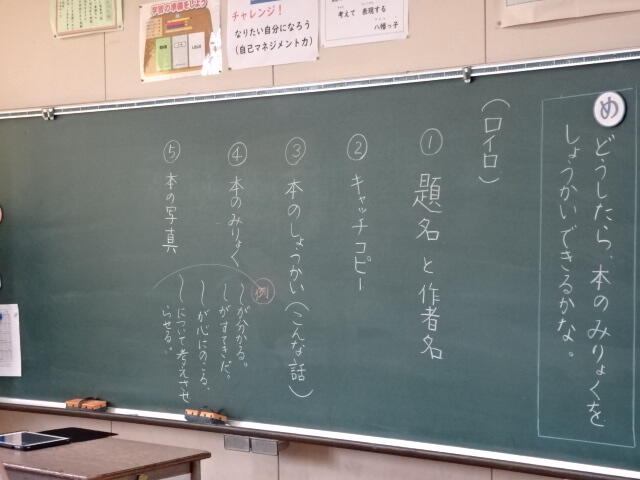 学習の準備をしよう
チャレンジ！
なりたい自分になろう
（自己マネジメント力）
考えて 表現する
八幡っ子
め
どうしたら、本のみりょくを
しょうかいできるかな。
（ロイロ）
① 題名と作者名
② キャッチコピー
③ 本のしょうかい（こんな話）
④ 本のみりょく
例
〜が分かる。
〜がすてきだ。
〜が心にのこる。
〜について考えさせ
られる。
⑤ 本の写真